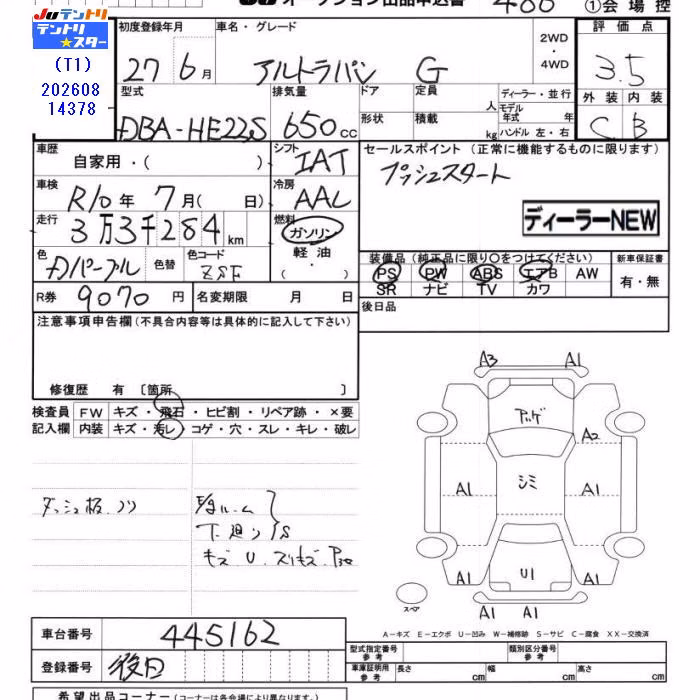 JUテントリ オークション出品申込書 486 ①会場控
テントリ★スター
(T1)
202608
14378
初度登録年月 車名・グレード 2WD・4WD 評価点
27年6月 アルトラパン G 3.5
型式 排気量 ドア 定員 ディーラー・並行 外装 内装
人 モデル年式 年
DBA-HE22S 650cc 形状 積載 kg ハンドル 左・右 C B
車歴 自家用・( ) シフト IAT セールスポイント (正常に機能するものに限ります)
プッシュスタート
車検 R10年 7月( 日) 冷房 AAC
ディーラーNEW
走行 3万3千284km 燃料 ガソリン・軽油・
色 Dパープル 色替 色コード ZSF
装備品(純正品に限り○をつけてください) 新車保証書
PS PW ABS エアB AW 有・無
SR ナビ TV カワ
R券 9070円 名変期限 月 日 後日品
注意事項申告欄(不具合内容等は具体的に記入して下さい)
修復歴 有 〔箇所 〕
検査員 FW キズ・飛石・ヒビ割・リペア跡・×要
記入欄 内装 キズ・汚レ・コゲ・穴・スレ・キレ・破レ
A3 A1
アッゲ
A2
A1 A1 シミ A1 A1
A1 U1 A1
A1 A1
スペア
ダッシュ板、ノリ
室内ルーム
下廻り S
キズ U、スリキズ
A-キズ E-エクボ U-凹み W-補修跡 S-サビ C-腐食 XX-交換済
車台番号 445162
型式指定番号 参考 類別区分番号 参考
登録番号 後日
車庫証明用 参考 長さ cm 幅 cm 高さ cm
希望出品コーナー(コーナーは各会場により異なります。)